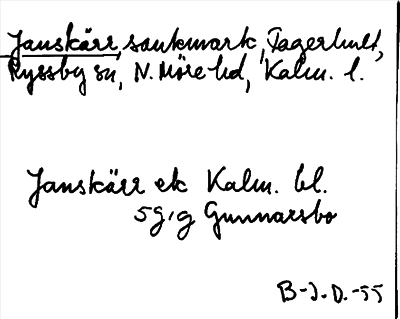 Janskärr, sankmark, Fagerhult,
Ryssby sn, N. Möre hd, Kalm. l.
Janskärr ek Kalm. bl.
5g,g Gunnarsbo
B-J.D.-55